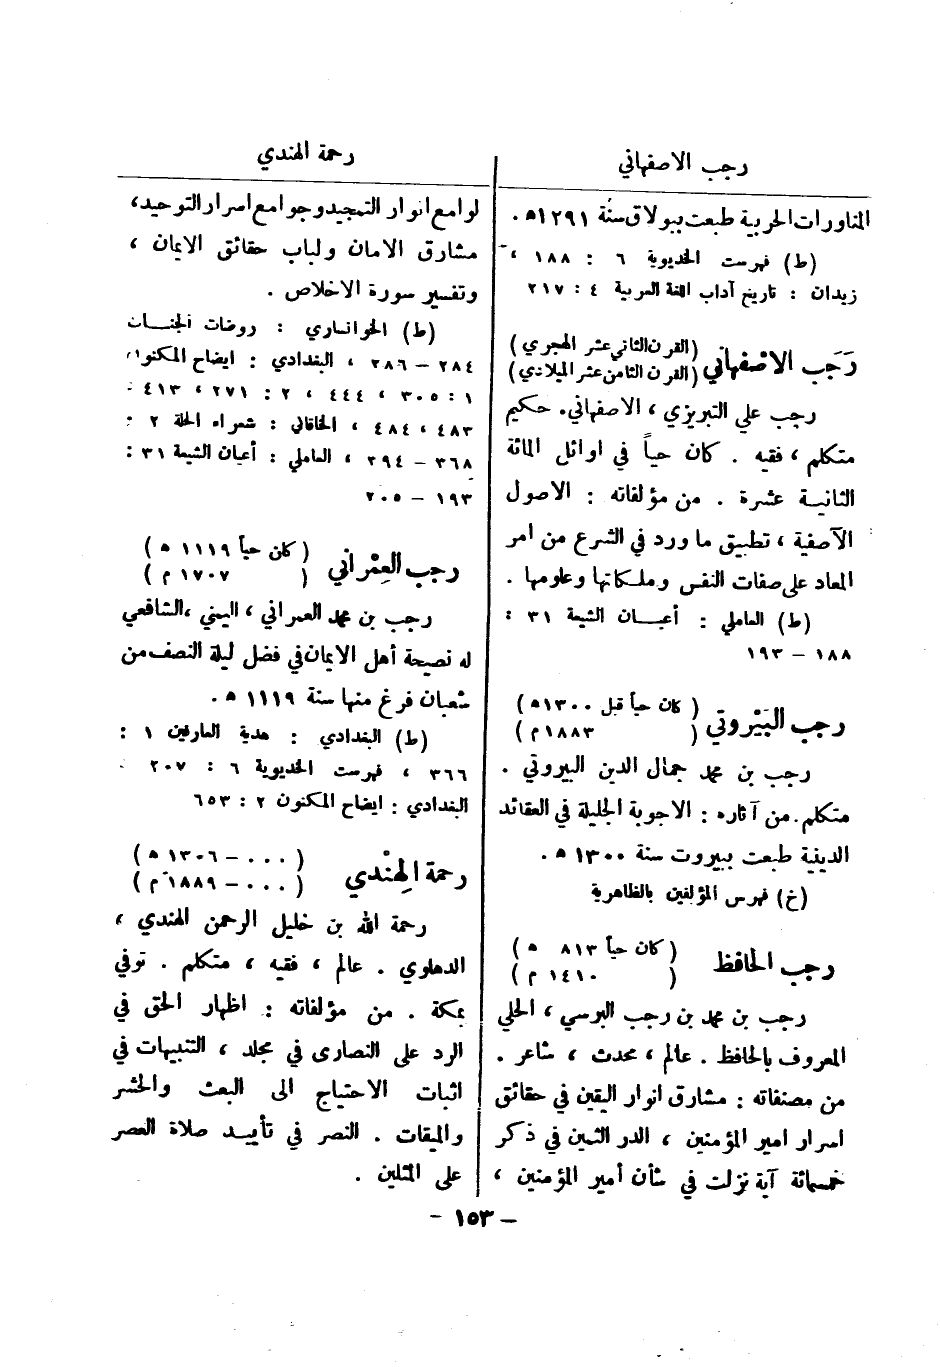 رجب الاصفهاني
المناورات الحربية طبعت ببولاق سنة ١٢٩١ه.
(ط) فهرست الخديوية ٦ : ١٨٨ ،
زيدان : تاريخ آداب اللغة العربية ٤ : ٢١٧
رَجَب الاصْفهاني (القرن الثاني عشر الهجري)
(القرن الثامن عشر الميلادي)
رجب علي التبريزي ، الاصفهاني. حكيم
متكلم ، فقيه . كان حياً في اوائل المائة
الثانية عشرة . من مؤلفاته : الاصول
الآصفية ، تطبيق ما ورد في الشرع من امر
المعاد على صفات النفس وملكاتها وعلومها .
(ط) العاملي : أعيان الشيعة ٣١ :
١٨٨ – ١٩٣
رجب البَيْروتي ( كان حياً قبل ١٣٠٠ه )
( ١٨٨٣م )
رجب بن محمد جمال الدين البيروتي .
متكلم. من آثاره : الاجوبة الجليلة في العقائد
الدينية طبعت ببيروت سنة ١٣٠٠ ه .
(خ) فهرس المؤلفين بالظاهرية
رجب الحافظ ( كان حياً ٨١٣ ه )
( ١٤١٠ م )
رجب بن محمد بن رجب البرسي ، الحلي
المعروف بالحافظ . عالم ، محدث ، شاعر .
من مصنفاته : مشارق انوار اليقين في حقائق
اسرار امير المؤمنين ، الدر الثمين في ذكر
خمسمائة آية نزلت في شأن أمير المؤمنين ،
رحمة الهندي
لوامع انوار التمجيد وجوامع اسرار التوحيد،
مشارق الامان ولباب حقائق الايمان ،
وتفسير سورة الاخلاص .
(ط) الخوانساري : روضات الجنات
٢٨٤ – ٢٨٦ ، البغدادي : ايضاح المكنون
١ : ٣٠٥ ، ٤٤٤ ، ٢ : ٢٧١ ، ٤١٣
٤٨٣ ، ٤٨٤ ، الخاقاني : شعراء الحلة ٢ :
٣٦٨ – ٣٩٤ ، العاملي : أعيان الشيعة ٣١ :
١٩٣ – ٢٠٥
رجب العِمْراني ( كان حياً ١١١٩ ه )
( ١٧٠٧ م )
رجب بن محمد العمراني ، اليمني ، الشافعي
له نصيحة أهل الايمان في فضل ليلة النصف من
شعبان فرغ منها سنة ١١١٩ ه .
(ط) البغدادي : هدية العارفين ١ :
٣٦٦ ، فهرست الخديوية ٦ : ٢٠٧
البغدادي : ايضاح المكنون ٢ : ٦٥٣
رحمة الهِنْدي ( ٠٠٠ – ١٣٠٦ ه )
( ٠٠٠ – ١٨٨٩ م )
رحمة الله بن خليل الرحمن الهندي ،
الدهلوي . عالم ، فقيه ، متكلم . توفي
بمكة . من مؤلفاته : اظهار الحق في
الرد على النصارى في مجلد ، التنبيهات في
اثبات الاحتياج الى البعث والحشر
والميقات . النصر في تأييد صلاة العصر
على المثلين .
– ١٥٣ –